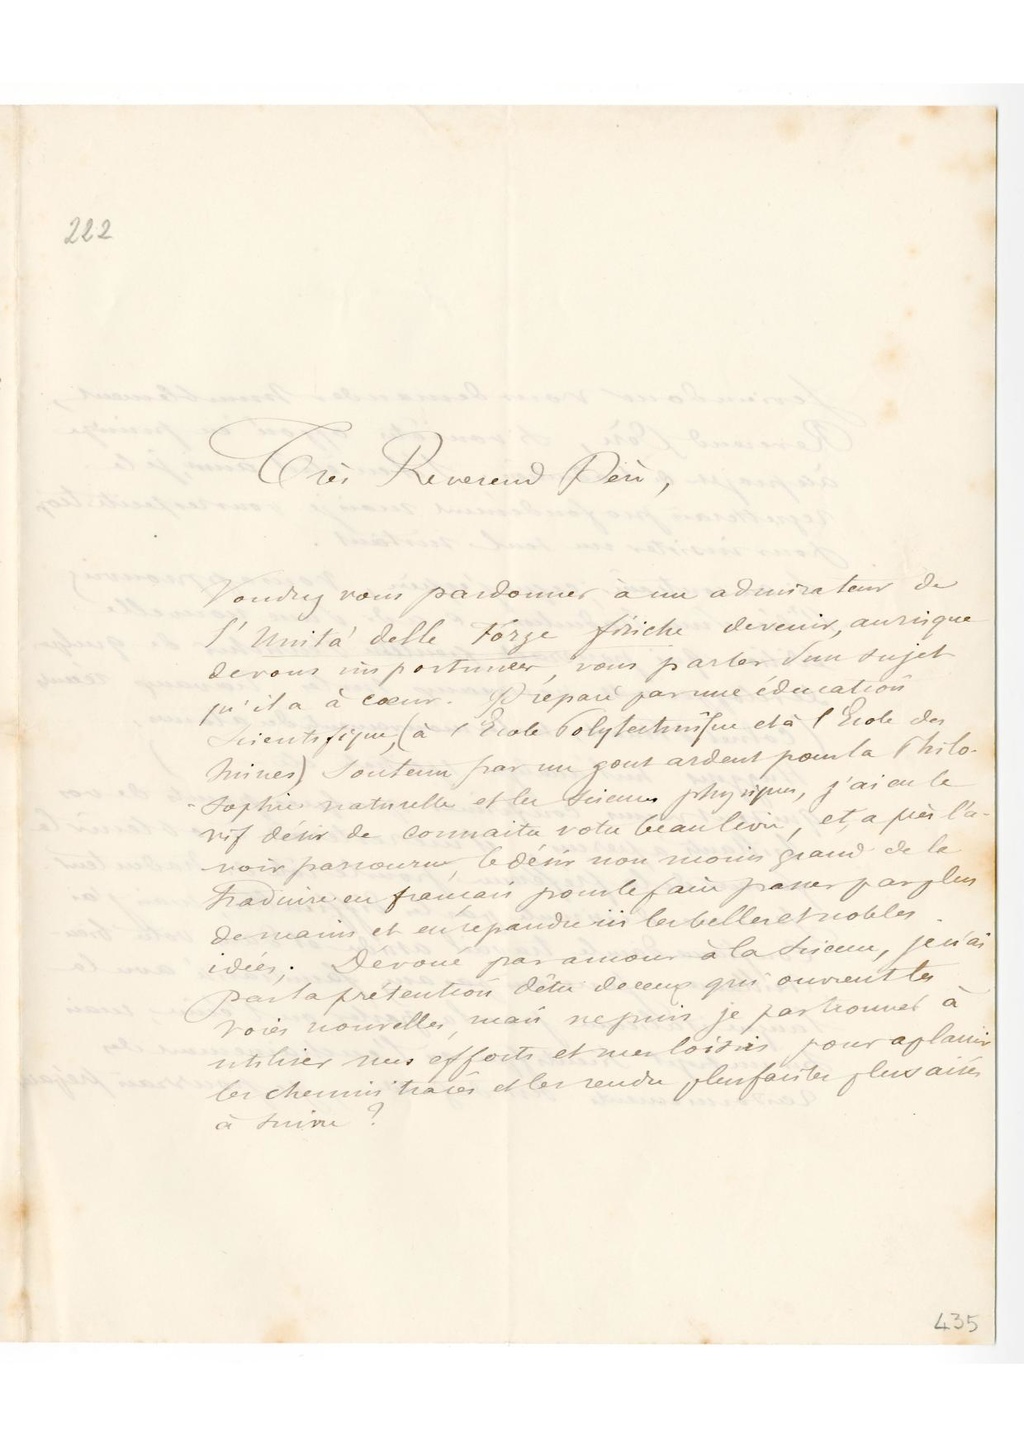 222
Très Reverend Père,
Voudrez vous pardonner à un admirateur de
l'Unitá delle Forze fisiche de venir, au risque
de vous importuner, vous parler d'un sujet
qu'il a à cœur. Préparé par une éducation
scientifique, (à l'Ecole Polytechnique et à l'Ecole des
Mines) soutenu par un gout ardent pour la Philo-
-sophie naturelle et les sciences physiques, j'ai eu le
vif désir de connaitre votre beau livre, et, après l'a-
-voir parcouru, le désir non moins grand de le
traduire en français pour le faire passer par plus
de mains et en répandre ici les belles et nobles
idées. Dévoué par amour à la science, je n'ai
pas la prétention d'être de ceux qui ouvrent les
voies nouvelles, mais ne puis je pas honnet à
utiliser mes efforts et mes loisirs pour aplanir
les chemins tracés et les rendre plus faciles plus aisés
à suivre ?
435